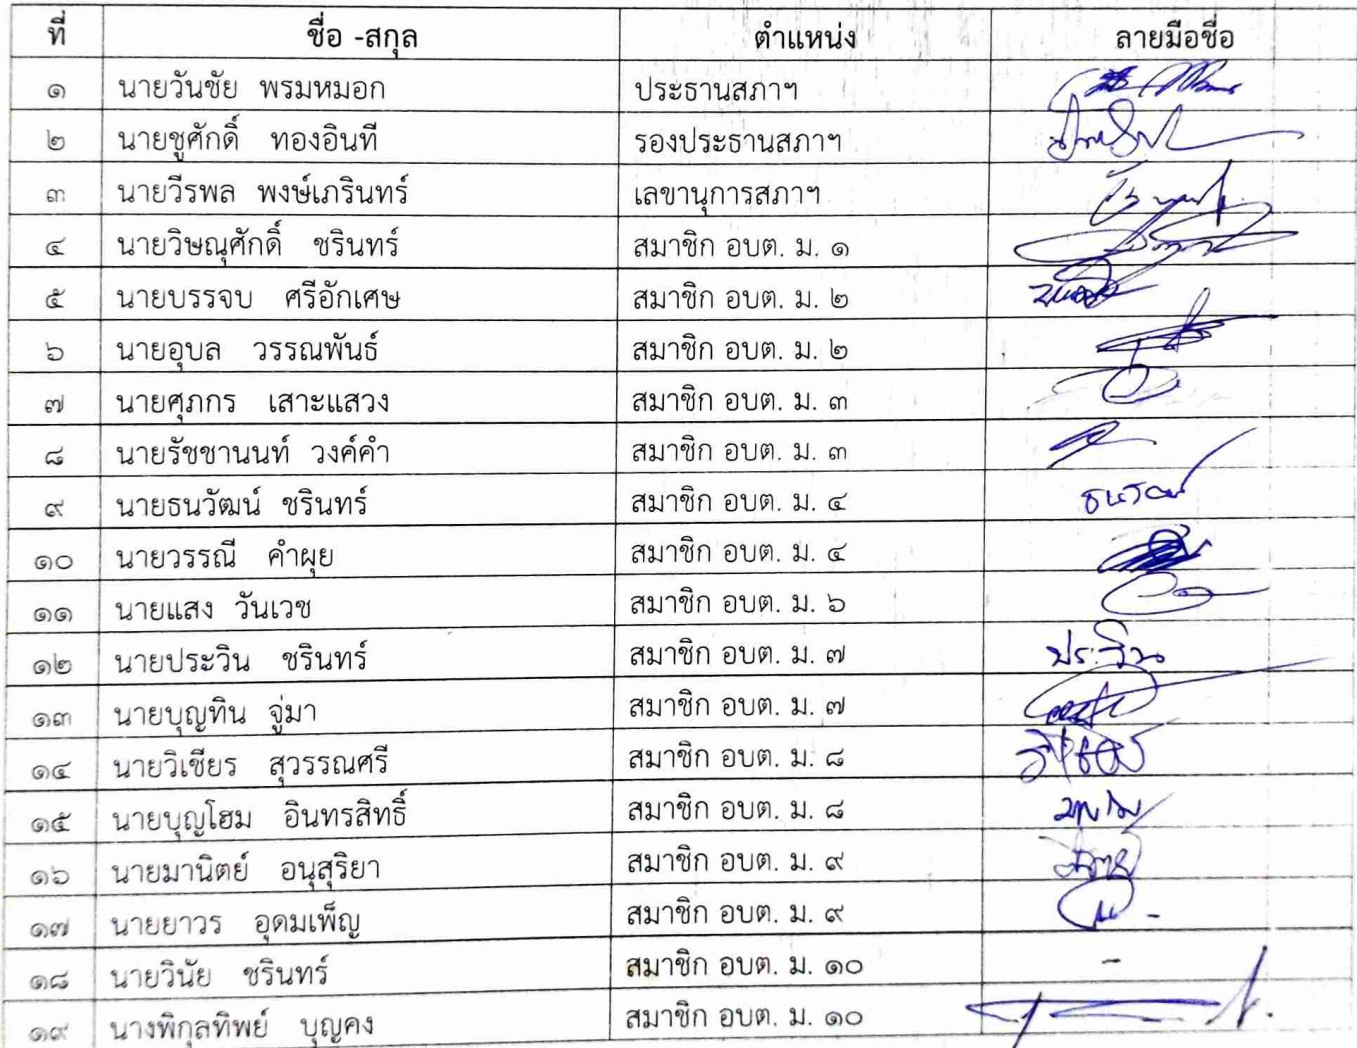 ที่ ชื่อ -สกุล ตำแหน่ง ลายมือชื่อ
๑ นายวันชัย พรมหมอก ประธานสภาฯ
๒ นายชูศักดิ์ ทองอินที รองประธานสภาฯ
๓ นายวีรพล พงษ์เภรินทร์ เลขานุการสภาฯ
๔ นายวิษณุศักดิ์ ชรินทร์ สมาชิก อบต. ม. ๑
๕ นายบรรจบ ศรีอักเศษ สมาชิก อบต. ม. ๒
๖ นายอุบล วรรณพันธ์ สมาชิก อบต. ม. ๒
๗ นายศุภกร เสาะแสวง สมาชิก อบต. ม. ๓
๘ นายรัชชานนท์ วงค์คำ สมาชิก อบต. ม. ๓
๙ นายธนวัฒน์ ชรินทร์ สมาชิก อบต. ม. ๔
๑๐ นายวรรณี คำผุย สมาชิก อบต. ม. ๔
๑๑ นายแสง วันเวช สมาชิก อบต. ม. ๖
๑๒ นายประวิน ชรินทร์ สมาชิก อบต. ม. ๗ ประวิน
๑๓ นายบุญทิน จู่มา สมาชิก อบต. ม. ๗
๑๔ นายวิเชียร สุวรรณศรี สมาชิก อบต. ม. ๘
๑๕ นายบุญโฮม อินทรสิทธิ์ สมาชิก อบต. ม. ๘
๑๖ นายมานิตย์ อนุสุริยา สมาชิก อบต. ม. ๙
๑๗ นายยาวร อุดมเพ็ญ สมาชิก อบต. ม. ๙
๑๘ นายวินัย ชรินทร์ สมาชิก อบต. ม. ๑๐ -
๑๙ นางพิกุลทิพย์ บุญคง สมาชิก อบต. ม. ๑๐